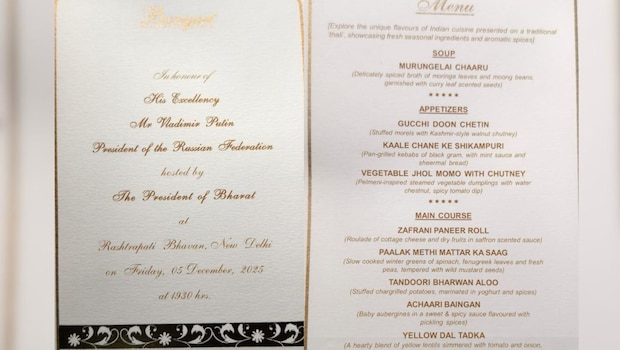 Banquet
In honour of
His Excellency
Mr Vladimir Putin
President of the Russian Federation
hosted by
The President of Bharat
at
Rashtrapati Bhavan, New Delhi
on Friday, 05 December, 2025
at 1930 hrs.
Menu
[Explore the unique flavours of Indian cuisine presented on a traditional
'thali', showcasing fresh seasonal ingredients and aromatic spices]
SOUP
MURUNGELAI CHAARU
(Delicately spiced broth of moringa leaves and moong beans,
garnished with curry leaf scented seeds)
*****
APPETIZERS
GUCCHI DOON CHETIN
(Stuffed morels with Kashmir-style walnut chutney)
KAALE CHANE KE SHIKAMPURI
(Pan-grilled kebabs of black gram, with mint sauce and
sheermal bread)
VEGETABLE JHOL MOMO WITH CHUTNEY
(Pelmeni-inspired steamed vegetable dumplings with water
chestnut, spicy tomato dip)
*****
MAIN COURSE
ZAFRANI PANEER ROLL
(Roulade of cottage cheese and dry fruits in saffron scented sauce)
PAALAK METHI MATTAR KA SAAG
(Slow cooked winter greens of spinach, fenugreek leaves and fresh
peas, tempered with wild mustard seeds)
TANDOORI BHARWAN ALOO
(Stuffed chargrilled potatoes, marinated in yoghurt and spices)
ACHAARI BAINGAN
(Baby aubergines in a sweet & spicy sauce flavoured with
pickling spices)
YELLOW DAL TADKA
(A hearty blend of yellow lentils simmered with tomato and onion,